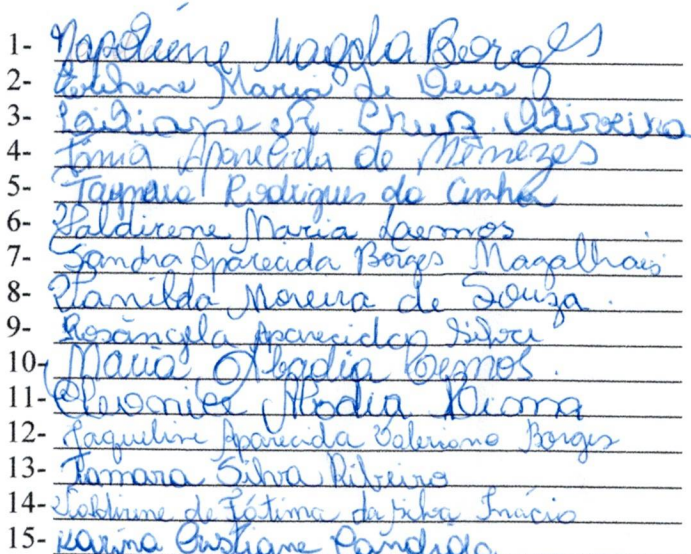 1- Magda Borges
2- Maria de Deus
3- R. Cruz
4- Tânia Aparecida de Menezes
5- Taynara Rodrigues da Cunha
6- Valdirene Maria Lemos
7- Sandra Aparecida Borges Magalhais
8- Vanilda Moreira de Souza.
9- Rosângela Aparecida Silva
10- Maria Abadia Lemos.
11- Abadia
12- Jaqueline Aparecida Valeriano Borges
13- Tamara Silva Ribeiro
14- Valdirene de Fátima da Silva Inácio
15- Karina Cristiane Candida